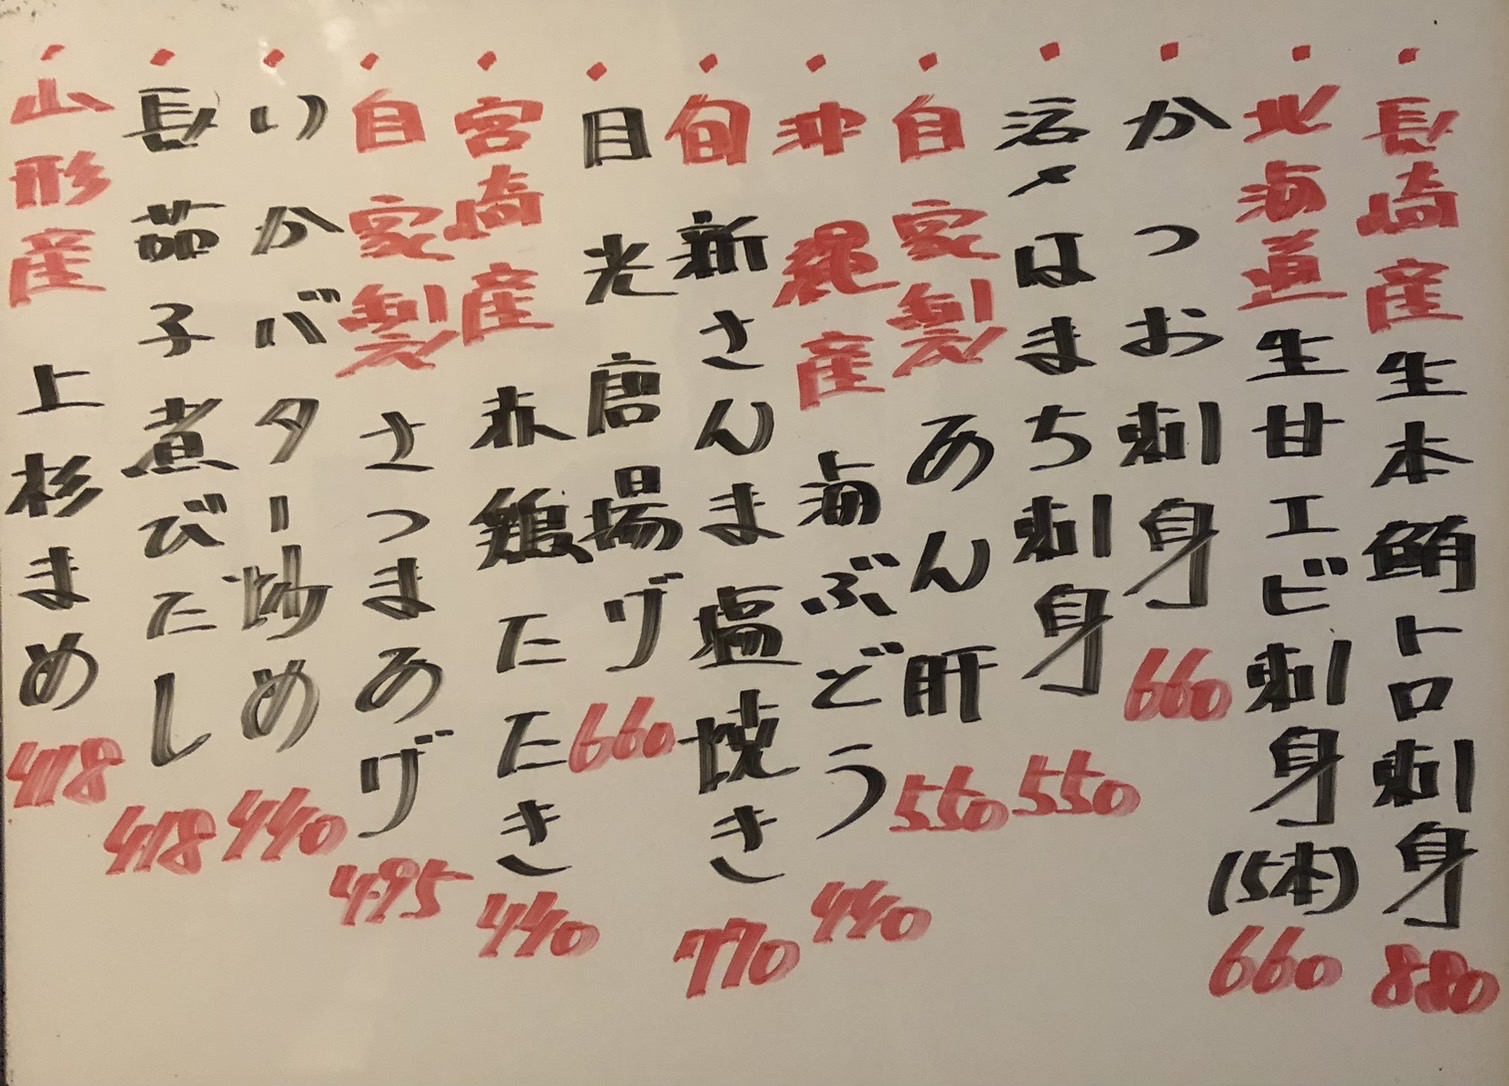 ・長崎産生本鮪トロ刺身 880
・北海道生甘エビ刺身(5本) 660
・かつお刺身 660
・活〆はまち刺身 550
・自家製あん肝 550
・沖縄産海ぶどう 440
・旬新さんま塩焼き 770
・目光唐揚げ 660
・宮崎産赤鶏たたき 440
・自家製さつまあげ 495
・いかバター炒め 440
・長茄子煮びたし 418
・山形産上杉まめ 418